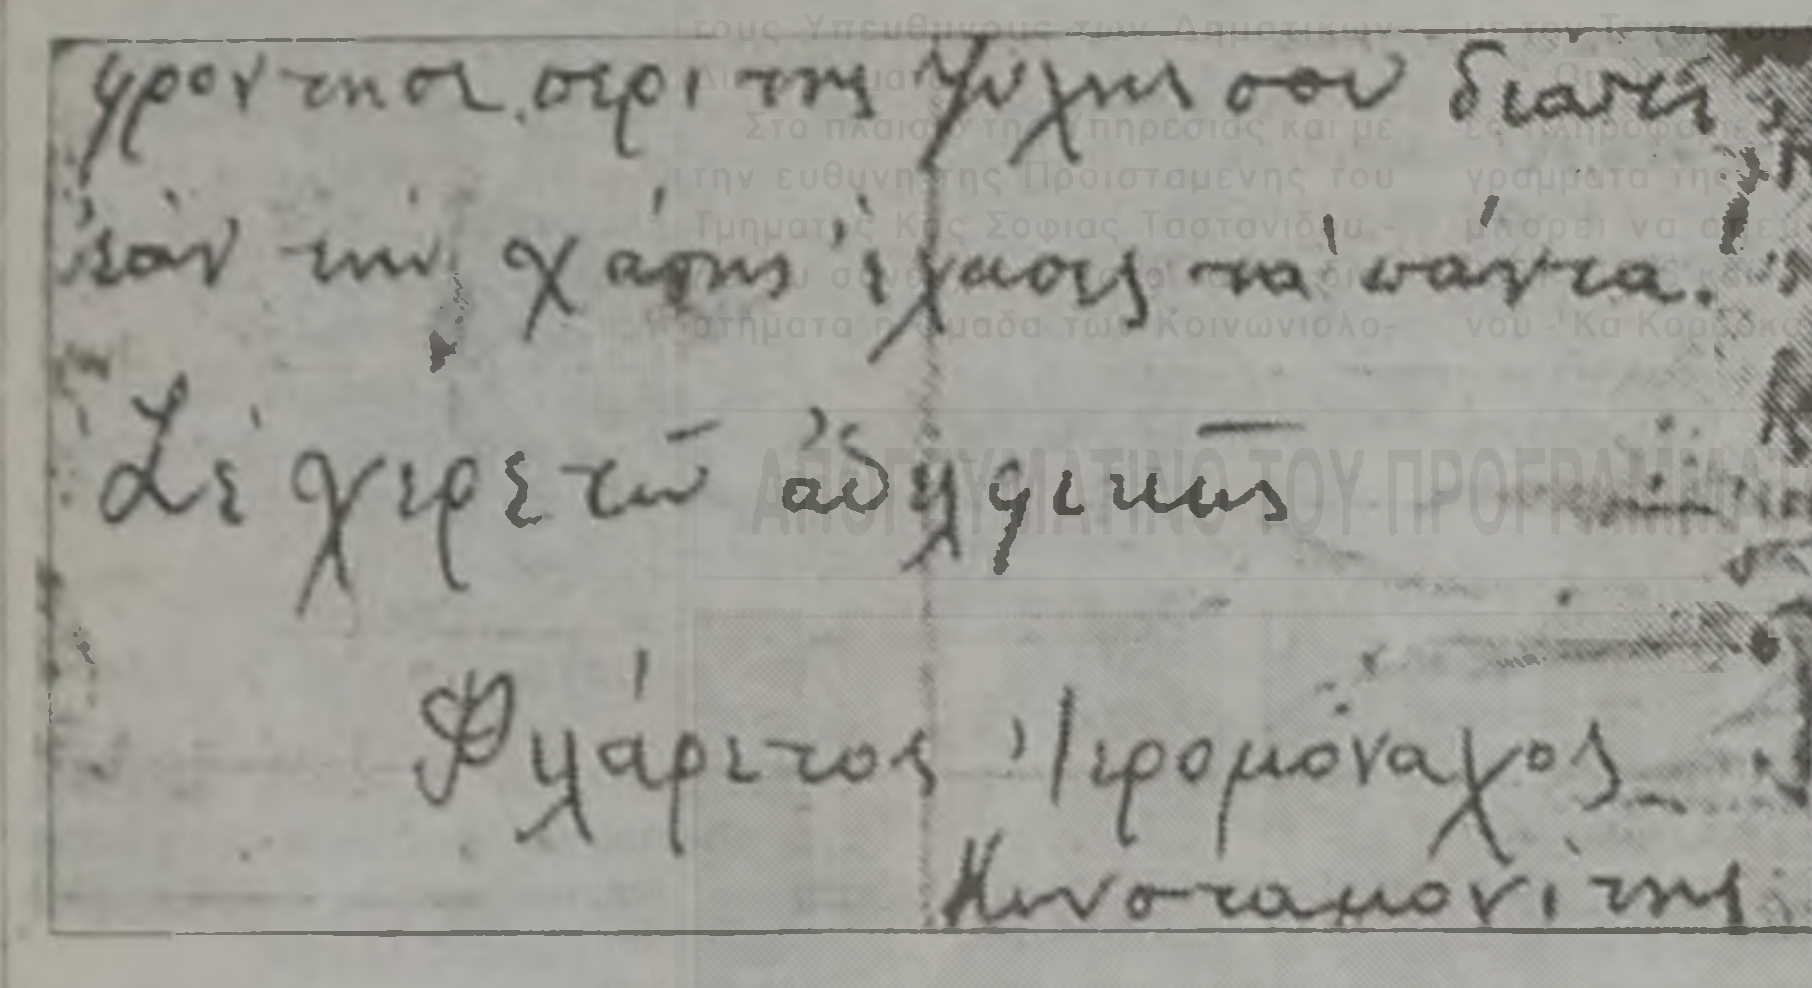 φροντησε περι της ψυχης σου διατι
ἐὰν την χάσης ἐχασες τα πάντα.
Σὲ χερετῶ ἀδελφικῶς
Φιλάρετος Ἱερομόναχος
Κωνσταμονίτης